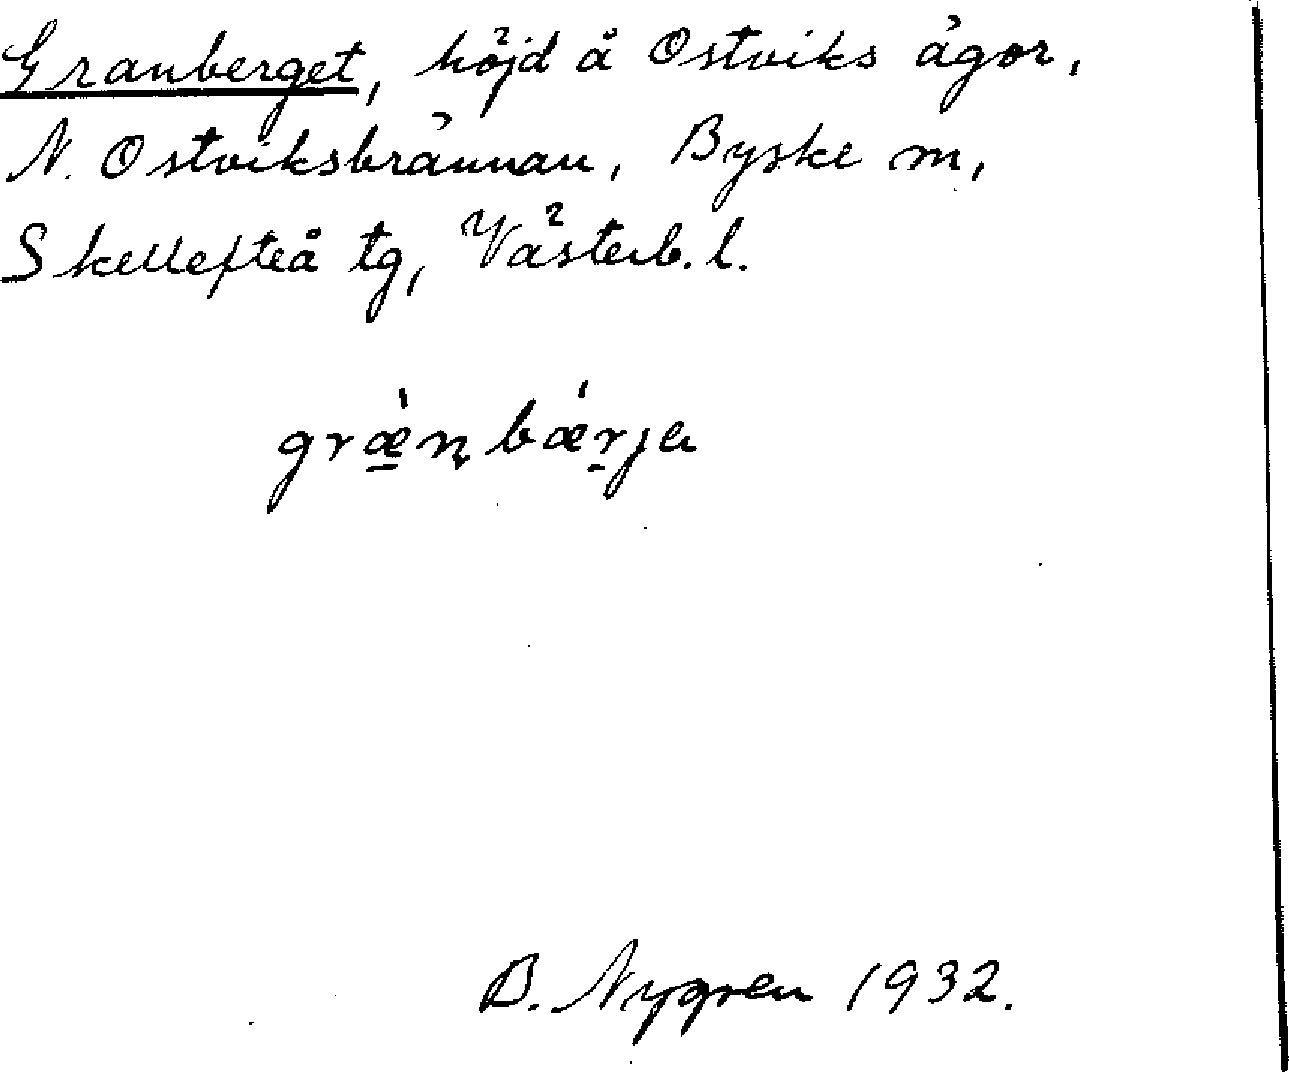 Granberget, höjd å Ostviks ägor,
N. Ostviksbrännan, Byske sn,
Skellefteå tg, Västerb. l.
græ̠̀n̨bǽr̠ja
B. Nygren 1932.